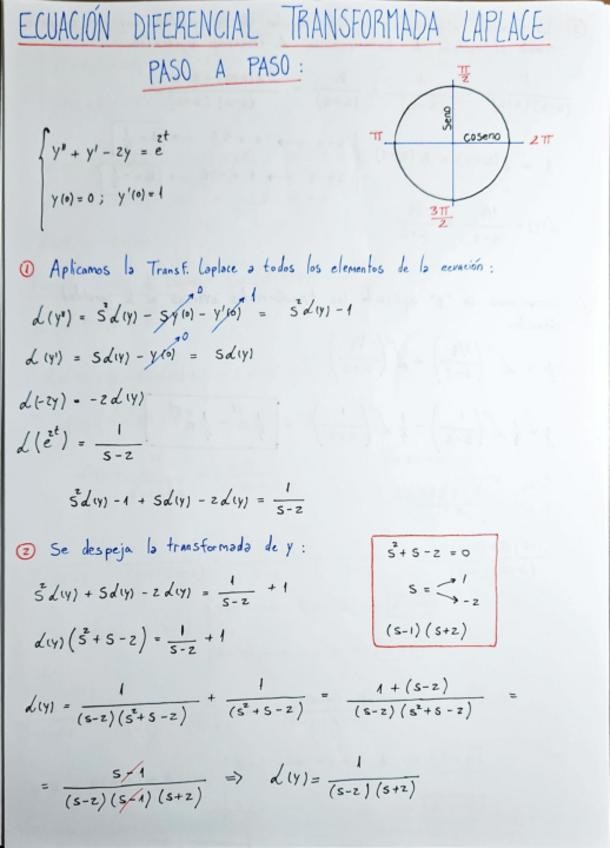 ECUACIÓN DIFERENCIAL TRANSFORMADA LAPLACE
PASO A PASO:
π/2
Seno
π
coseno
2π
3π/2
y'' + y' - 2y = e^2t
y(0) = 0 ; y'(0) = 1
① Aplicamos la Transf. Laplace a todos los elementos de la ecuación:
L(y'') = s²L(y) - sy(0) - y'(0) = s²L(y) - 1
0
1
L(y') = sL(y) - y(0) = sL(y)
0
L(-2y) = -2L(y)
L(e^2t) = 1/(s-2)
s²L(y) - 1 + sL(y) - 2L(y) = 1/(s-2)
② Se despeja la transformada de y:
s²L(y) + sL(y) - 2L(y) = 1/(s-2) + 1
L(y)(s² + s - 2) = 1/(s-2) + 1
s² + s - 2 = 0
s = 1
-2
(s-1)(s+2)
L(y) = 1/((s-2)(s²+s-2)) + 1/(s²+s-2) = (1+(s-2))/((s-2)(s²+s-2)) =
= (s-1)/((s-2)(s-1)(s+2)) ⇒ L(y) = 1/((s-2)(s+2))